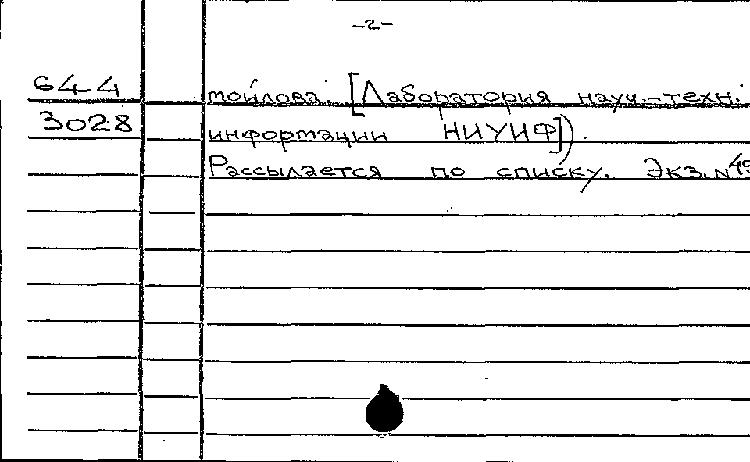 -2-
64-4 тойлова. [Лаборатория науч.-техн.
3028 информации НИУИФ]).
Рассылается по списку. Экз. №49